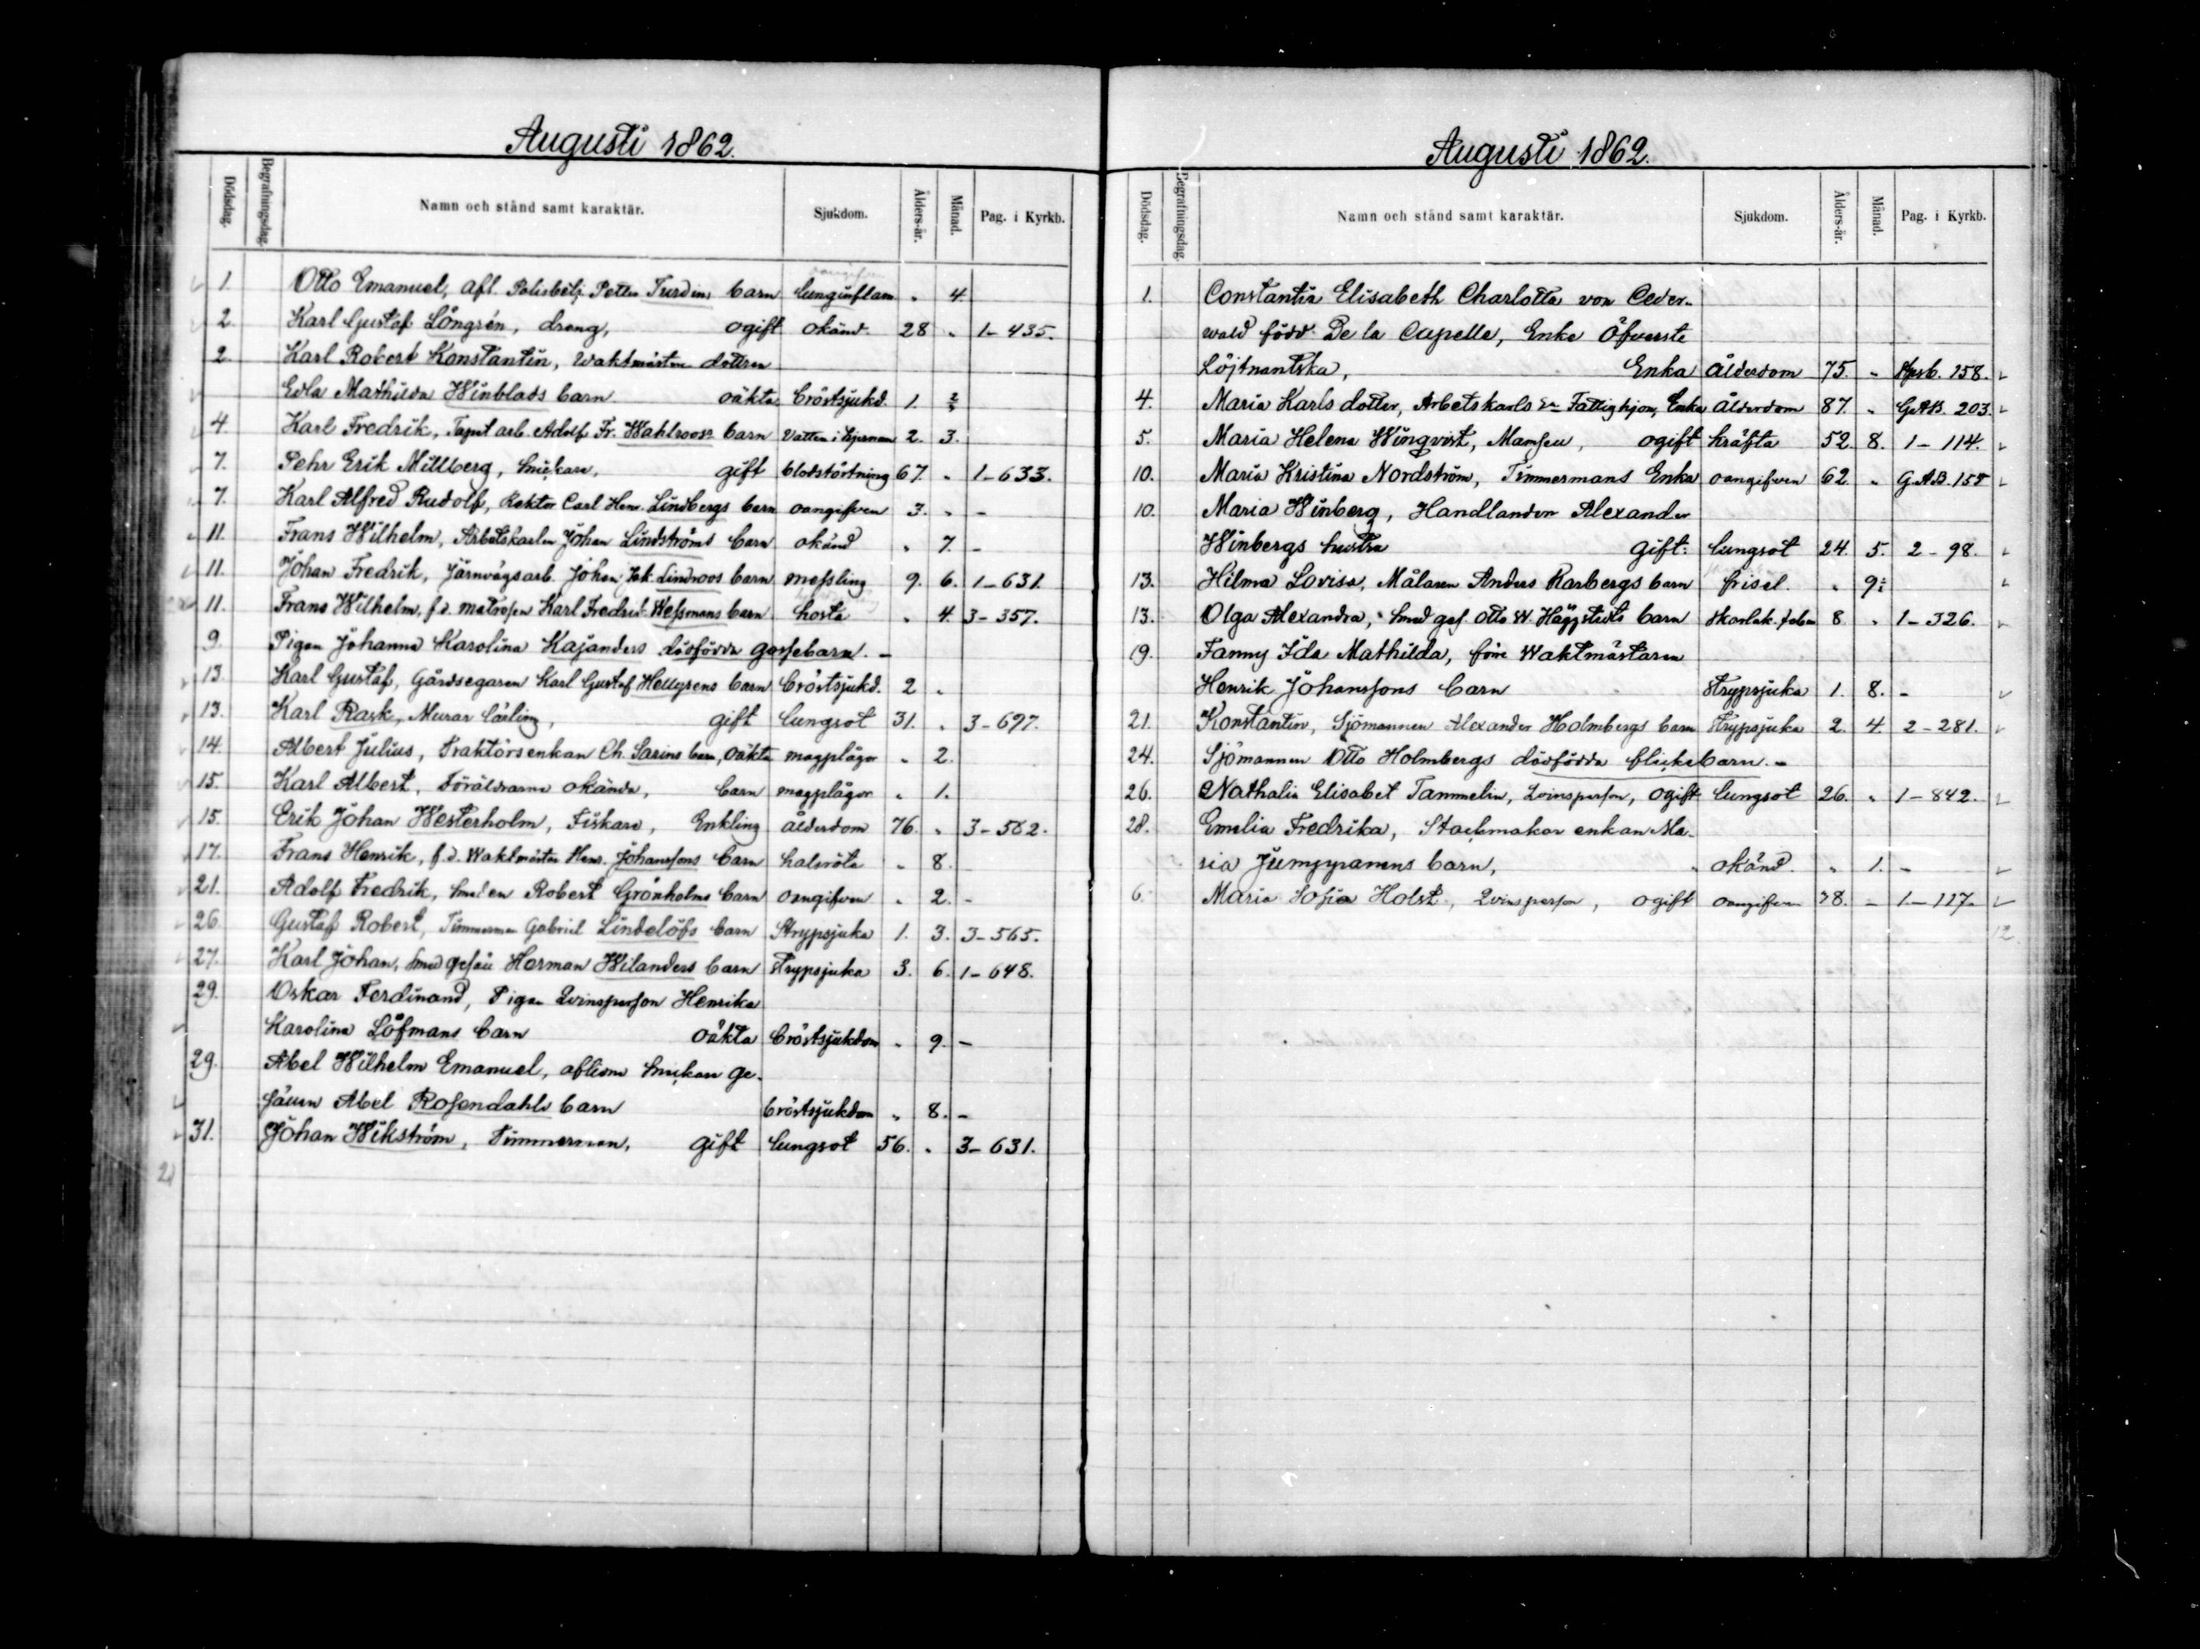 Augusti 1862.
Dödsdag. Begrafningsdag. Namn och stånd samt karaktär. Sjukdom. Ålders-år. Månad. Pag. i Kyrkb.
oangifven
1. Otto Emanuel, afl. Polisbetj. Petter Turdins barn lunginflam „ 4
2. Karl Gustaf Långrén, dreng, ogift okänd 28 „ 1-435.
2. Karl Robert Konstantin, Waktmästare dottren
Edla Mathilda Winblads barn oäkta bröstsjukd. 1.
4. Karl Fredrik, Tapet arb. Adolf Fr. Wahlroos barn Vatten i hjernan 2. 3.
7. Pehr Erik Millberg, Snickare, gift blodstörtning 67. „ 1-633.
7. Karl Alfred Rudolf, Rektor Carl Henr. Lindbergs barn oangifven 3. „ -
11. Frans Wilhelm, Arbetskarlen Johan Lindströms barn okänd „ 7. -
11. Johan Fredrik, Järnvägsarb. Johan Jak. Lindroos barn messling 9. 6. 1-631.
11. Frans Wilhelm, f.d. matrosen Karl Fredrik Wessmans barn hosta „ 4. 3-357.
9. Pigan Johanna Karolina Kajanders dödfödda gossebarn. -
13. Karl Gustaf, Gårdsegaren Karl Gustaf Hellgrens barn bröstsjukd. 2 „
13. Karl Rask, Murar lärling, gift lungsot 31. „ 3-697.
14. Albert Julius, Traktörsenkan Ch. Sarins barn, oäkta magplågor „ 2.
15. Karl Albert, Föräldrarne okända, barn magplågor „ 1.
15. Erik Johan Westerholm, Fiskare, Enkling ålderdom 76. „ 3-582.
17. Frans Henrik, f.d. Waktmäster Henr. Johanssons barn halsröta „ 8.
21. Adolf Fredrik, Smeden Robert Grönholms barn oangifven „ 2. -
26. Gustaf Robert, Timmerman Gabriel Lindelöfs barn Strypsjuka 1. 3. 3-565.
27. Karl Johan, Smedgesäll Herman Wilanders barn Strypsjuka 3. 6. 1-648.
29. Oskar Ferdinand, Pigan Qvinsperson Henrika
Karolina Löfmans barn oäkta bröstsjukdom „ 9. -
29. Abel Wilhelm Emanuel, aflidne Snickare ge-
sällen Abel Rosendahls barn bröstsjukdom „ 8. -
31. Johan Wikström, Timmerman, gift lungsot 56. „ 3-631.
21
Augusti 1862.
Dödsdag. Begrafningsdag. Namn och stånd samt karaktär. Sjukdom. Ålders-år. Månad. Pag. i Kyrkb.
1. Constantia Elisabeth Charlotta von Ceder-
wald född De la Capelle, Enka Öfverste
Löjtnantska, Enka ålderdom 75. „ 158.
4. Maria Karls dotter, Arbetskarls Fattighjon, Enka ålderdom 87. „ G.A.B. 203.
5. Maria Helena Winqvist, Mamsell, ogift kräfta 52. 8. 1-114.
10. Maria Kristina Nordström, Timmermans Enka oangifven 62 „ G.A.B. 158
10. Maria Winberg, Handlanden Alexander
Winbergs hustru gift: lungsot 24. 5. 2-98.
13. Hilma Lovisa, Målaren Anders Karbergs barn frisel. „ 9.
13. Olga Alexandra, Smed ges. Otto W. Häggstedts barn Skarlak. feber 8. „ 1-326.
19. Fanny Ida Mathilda, förre Waktmästaren
Henrik Johanssons barn Strypsjuka 1. 8. -
21. Konstantin, Sjömannen Alexander Holmbergs barn Strypsjuka 2. 4. 2-281.
24. Sjömannen Otto Holmbergs dödfödda flickebarn. -
26. Nathalia Elisabet Tammelin, Qvinsperson, ogift lungsot 26. „ 1-842.
28. Emelia Fredrika, Stackmakar enkan Ma-
ria barn, okänd. „ 1. -
6. Maria Sofia Holst, Qvinsperson, ogift oangifven 78. - 1-117.
12.